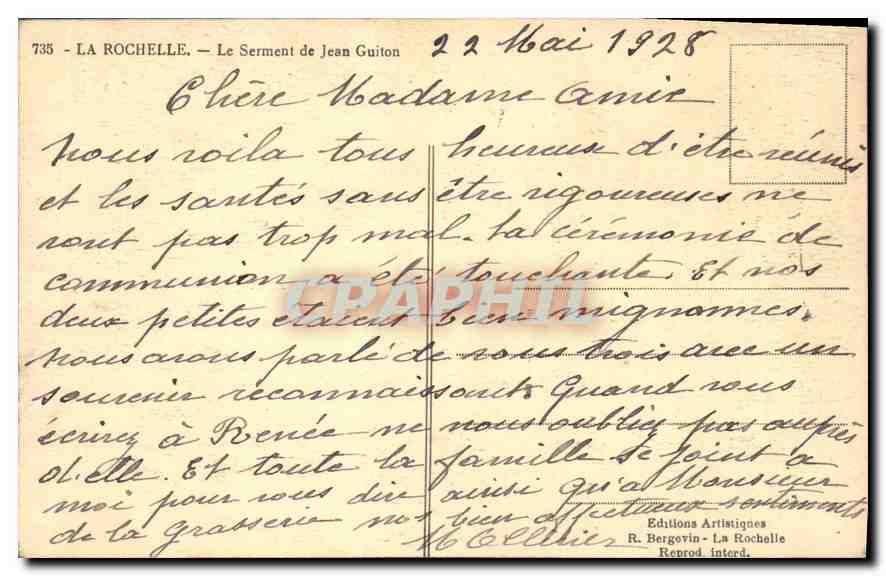 735 - LA ROCHELLE. — Le Serment de Jean Guiton
22 Mai 1928
Chère Madame Amie
Nous voila tous heureux d'être réunis
et les santés sans être rigoureuses ne
vont pas trop mal. La cérémonie de
communion a été touchante. Et nos
deux petites étaient bien mignonnes.
Nous avons parlé de vous trois avec un
souvenir reconnaissant. Quand vous
écrirez à Renée ne nous oubliez pas auprès
d'elle. Et toute la famille se joint a
moi pour vous dire ainsi qu'a Monsieur
de la Grasserie nos bien affectueux sentiments
CPAPHIL
Editions Artistiques
R. Bergevin - La Rochelle
Reprod. interd.